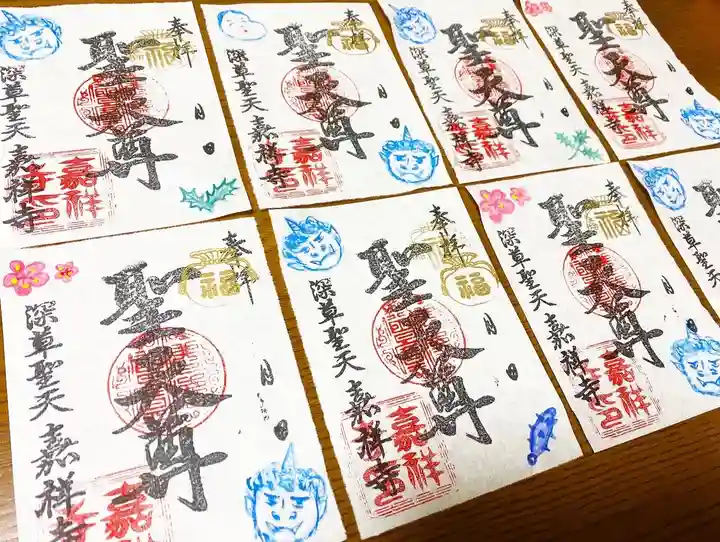 奉拝
聖天尊
福
月 日
深草聖天 嘉祥寺
嘉祥寺
奉拝
聖天尊
福
月 日
深草聖天 嘉祥寺
嘉祥
奉拝
聖天尊
福
月 日
深草聖天 嘉祥寺
嘉祥
奉拝
聖天尊
福
月 日
深草聖天 嘉祥寺
嘉祥
奉拝
聖天尊
福
月 日
深草聖天 嘉祥寺
嘉祥
奉拝
聖天尊
福
月 日
深草聖天 嘉祥寺
嘉祥
奉拝
聖天尊
福
月 日
深草聖天 嘉祥寺
嘉祥
深草聖天